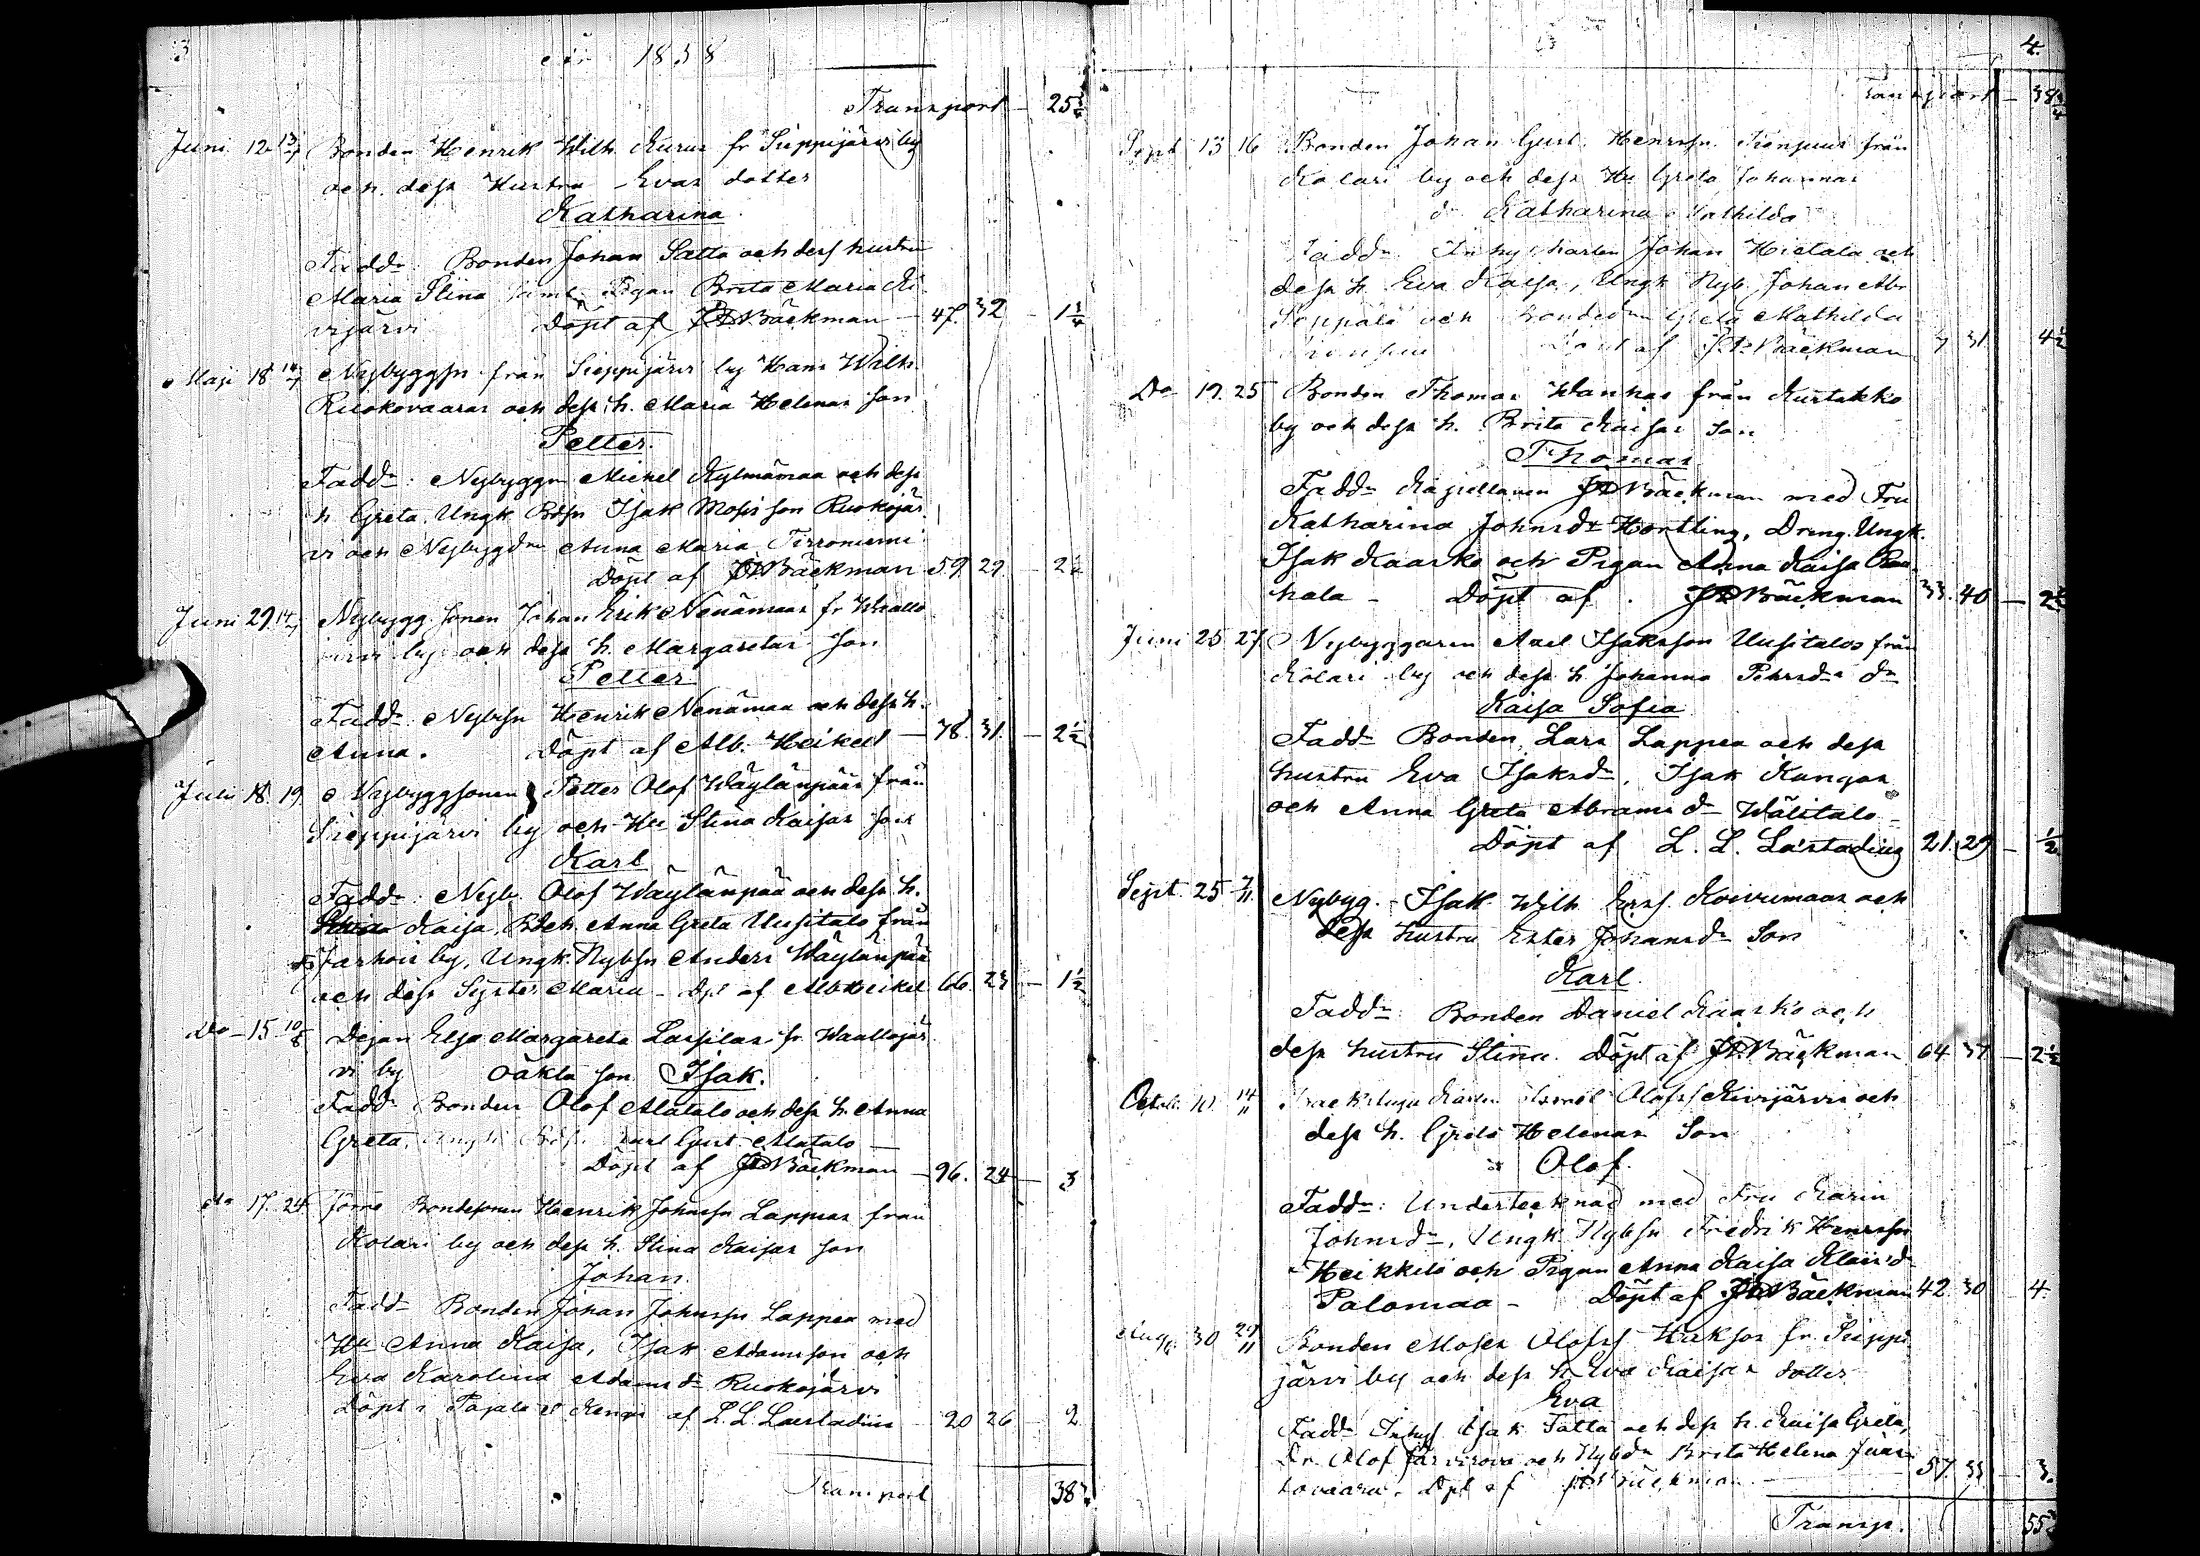 3
1858
Transport - 25 3/4
Juni 12 13/7 Bonden Henrik Wilh. Kurus fr Sieppijärvi by
och dess Hustru Evas dotter
Katharina
Faddr: Bonden Johan Satta och dess hustru
Maria Stina samt Pigan Brita Maria Ki-
vijärvi Döpt af JDBäckman - 47. 32 - 1 3/4
Maji 18 14/7 Nybyggsn från Sieppijärvi by Hans Wilh
Ruokovaaras och dess h. Maria Helenas son
Petter.
Faddr: Nybyggn Michel Kylmämaa och dess
h Greta, Ungk Bdsn Isak Mosisson Ruokojär-
vi och Nybyggdn Anna Maria Tirroniemi
Döpt af JDBäckman 59. 29 - 2
Juni 29. 14/7 Nybygg. sonen Johan Erik Nenämaas fr Waallo
järvi by och dess h. Margaretas son
Petter
Faddr Nybsn Henrik Nenämaa och dess h.
Anna. Döpt af Alb. Heikel - 38. 31. - 2 1/2
Juli 18 19 Nybyggsonen Petter Olof Wäylänpääs från
Sieppijärvi by och Hu Stina Kaisas son
Karl
Faddr: Nyb. Olof Wäylänpää och dess h.
Kaisa, Anna Greta Uusitalo från
Jarhois by, Ungk. Nybsn Anders Wäylänpää
och dess Syster Maria - Dpt af AlbHeikel 66. 23 - 1 1/2
Do - 15 10/8 Dejan Elsa Margareta Lassilas fr Waallojär
vi by oäkta son Isak.
Faddr Bonden Olof Alatalo och dess h. Anna
Greta, Ungk Karl Gust Alatalo -
Döpt af JDBäckman - 96. 24 - 3
do 17. 24 Förre Bondesonen Henrik Johnssn Lappeas från
Kolari by och dess h. Stina Kaisas son
Johan.
Faddr Bonden Johan Johnssn Lappea med
Hu Anna Kaisa, Isak Adamsson och
Eva Karolina Adamsdr Ruokojärvi
Döpt i Pajala af L. L. Laestadius - 20 26 - 2
Transport 38
4.
Transport - 38 3/4
Sept 13 16 Bonden Johan Gust. Henrssn från
Kolari by och dess Hu Greta Johannas
dr Katharina Mathilda
Faddr Inhyshallen Johan Hietala och
dess h. Eva Kaisa, Ungk Nyb. Johan Abr
Seppälä och Bondedn Greta Mathilda
Döpt af J.D.Bäckman 31. 4 1/2
Do 19. 25 Bonden Thomas Wanhas från Kurtakko
by och dess h. Brita Kaisas son
Thomas
Faddr Kapellanen JDBäckman med Fru
Katharina Johnsdr Hortling, Dreng. Ungk.
Isak Kaarko och Pigan Anna Kaisa Rau-
hala - Döpt af JDBäckman 33. 40 - 2 1/2
Juni 25 27 Nybyggaren Axel Isaksson Uusitalos från
Kolari by och dess h. Johanna Pehrsdr dr
Kaisa Sofia
Faddr Bonden Lars Lappea och dess
hustru Eva Isaksdr, Isak Kangas
och Anna Greta Abramsdr Wälitalo -
Döpt af L. L. Læstadius 21. 29 - 1/2
Sept. 25 7/11 Nybyg. Isak Wilh Erss. Koivumaas och
dess hustru Ester Johansdr Son
Karl.
Faddr: Bonden Daniel Kaarko och
dess hustru Stina. Döpt af JDBäckman 64 37 - 2 1/2
Octob. 10. 14/11 Olofss Kivijärvis och
dess h. Greta Helenas Son
Olof.
Faddr: Undertecknad med Fru Karin
Johnsdr, Ungk. Nybsn Fredrik Henrssn
Heikkilä och Pigan Anna Kaisa Klas'dr
Palomaa - Döpt af JDBäckman 42. 30 - 4
Aug. 30 29/11 Bonden Moses Olofss fr Sieppi
järvi by och dess h. Eva Kaisas dotter
Eva
Faddr Inhys Isak Tatta och dess h. Kaisa Greta,
Dr. Olof Järvirova och Nybdr Brita Helena
Dpt af JDBäckman - 57. 33 - 3.
Transp. 55